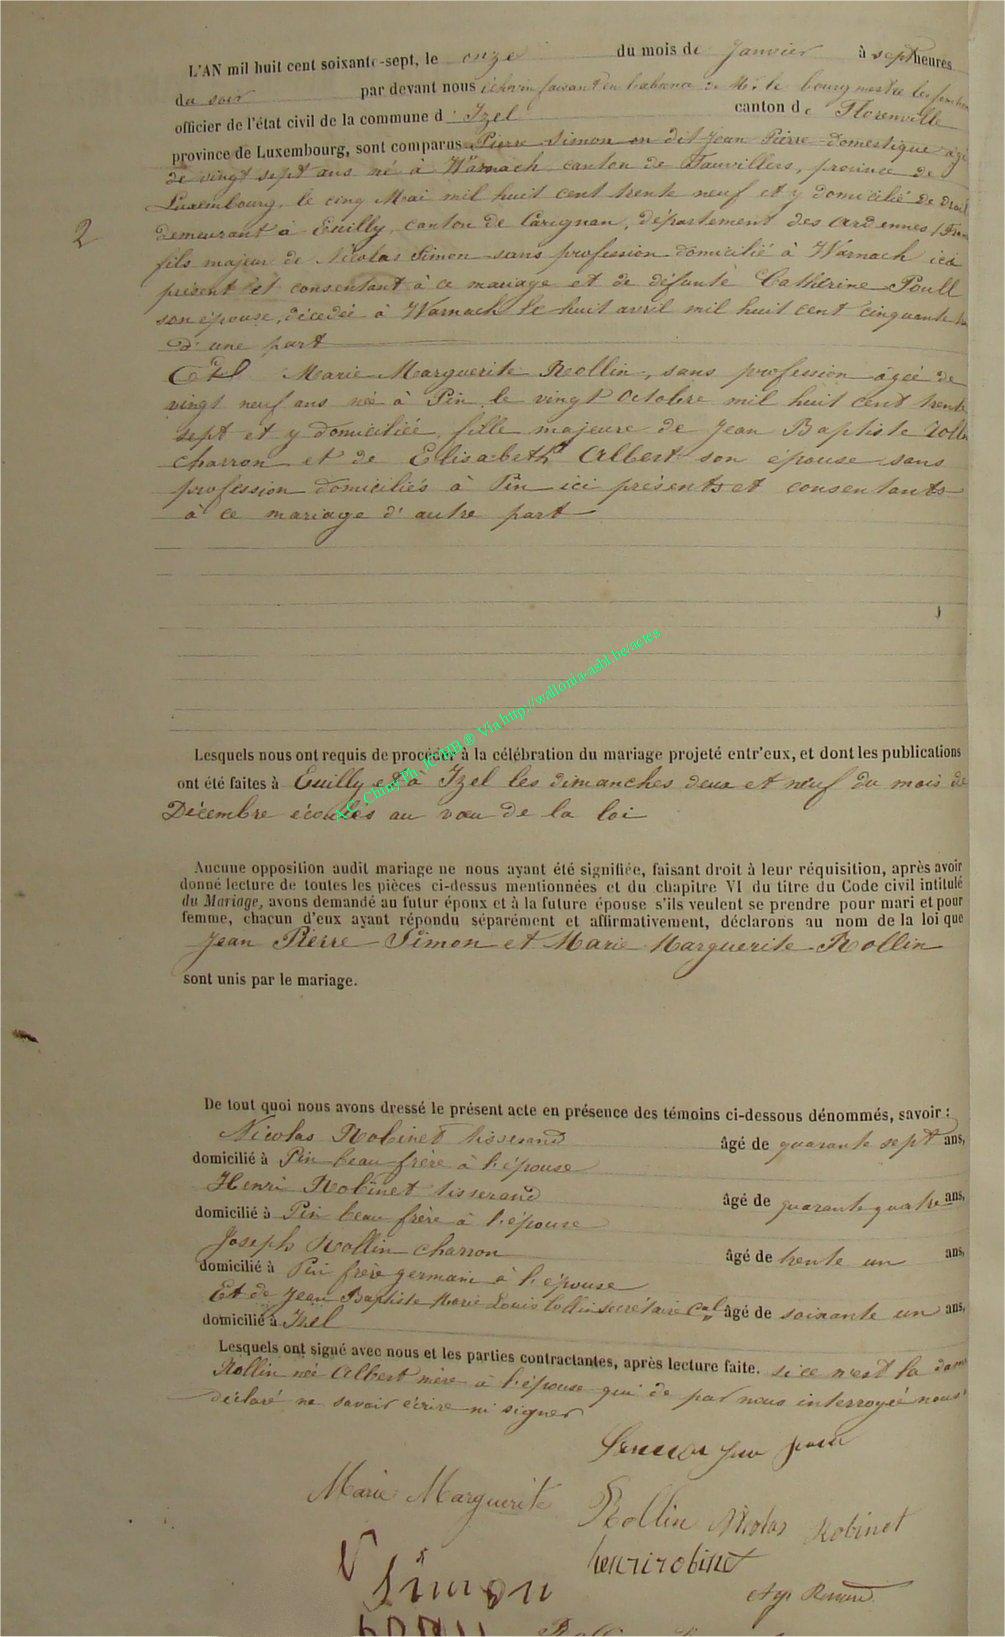 L'AN mil huit cent soixante-sept, le onze du mois de Janvier à sept heures
du soir par devant nous échevin faisant en l'absence de Mr. le bourgmestre les fonctions
officier de l'état civil de la commune d'Izel canton de Florenville
province de Luxembourg, sont comparus Pierre Simon on dit Jean Pierre domestique âgé
de vingt sept ans né à Warnach canton de Fauvillers, province de
Luxembourg, le cinq Mai mil huit cent trente neuf et y domicilié de droit
demeurant à Euilly, canton de Carignan, département des Ardennes
fils majeur de Nicolas Simon sans profession domicilié à Warnach ici
présent et consentant à ce mariage et de défunte Catherine Poull
son épouse, décédée à Warnach le huit avril mil huit cent cinquante
d'une part
2
Et Marie Marguerite Rollin, sans profession âgée de
vingt neuf ans née à Pin le vingt Octobre mil huit cent trente
sept et y domiciliée, fille majeure de Jean Baptiste Rollin
charron et de Elisabeth Albert son épouse sans
profession domiciliés à Pin ici présents et consentants
à ce mariage d'autre part
Lesquels nous ont requis de procéder à la célébration du mariage projeté entr'eux, et dont les publications
ont été faites à Euilly et à Izel les dimanches deux et neuf du mois de
Décembre écoulés au vœu de la loi
A.C. Chiny Ph. JC HD ® Via http://wallonia-asbl.be/actes
Aucune opposition audit mariage ne nous ayant été signifiée, faisant droit à leur réquisition, après avoir
donné lecture de toutes les pièces ci-dessus mentionnées et du chapitre VI du titre du Code civil intitulé
du Mariage, avons demandé au futur époux et à la future épouse s'ils veulent se prendre pour mari et pour
femme, chacun d'eux ayant répondu séparément et affirmativement, déclarons au nom de la loi que
Jean Pierre Simon et Marie Marguerite Rollin
sont unis par le mariage.
De tout quoi nous avons dressé le présent acte en présence des témoins ci-dessous dénommés, savoir :
Nicolas Robinet tisserand âgé de quarante sept ans,
domicilié à Pin beau frère à l'épouse
Henri Robinet tisserand âgé de quarante quatre ans,
domicilié à Pin beau frère à l'épouse
Joseph Rollin charron âgé de trente un ans,
domicilié à Pin frère germain à l'épouse
Et de Jean Baptiste Marie Louis Collin secrétaire Cal âgé de soixante un ans,
domicilié à Izel
Lesquels ont signé avec nous et les parties contractantes, après lecture faite. si ce n'est la dame
Rollin née Albert mère à l'épouse qui de par nous interroyée nous
déclaré ne savoir écrire ni signer
Marie Marguerite Rollin Nicolas Robinet
henri robinet
Simon